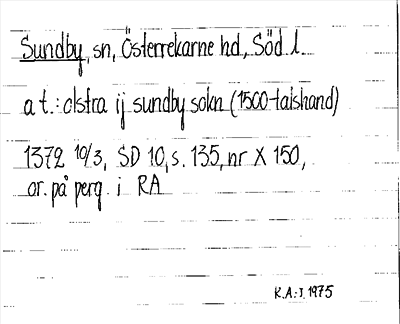 Sundby, sn, Österrekarne hd, Söd. l.
a t.: olstra ij sundby sokn (1500-talshand)
1372 10/3, SD 10, s. 135, nr X 150,
or. på perg. i RA
K.A:J. 1975